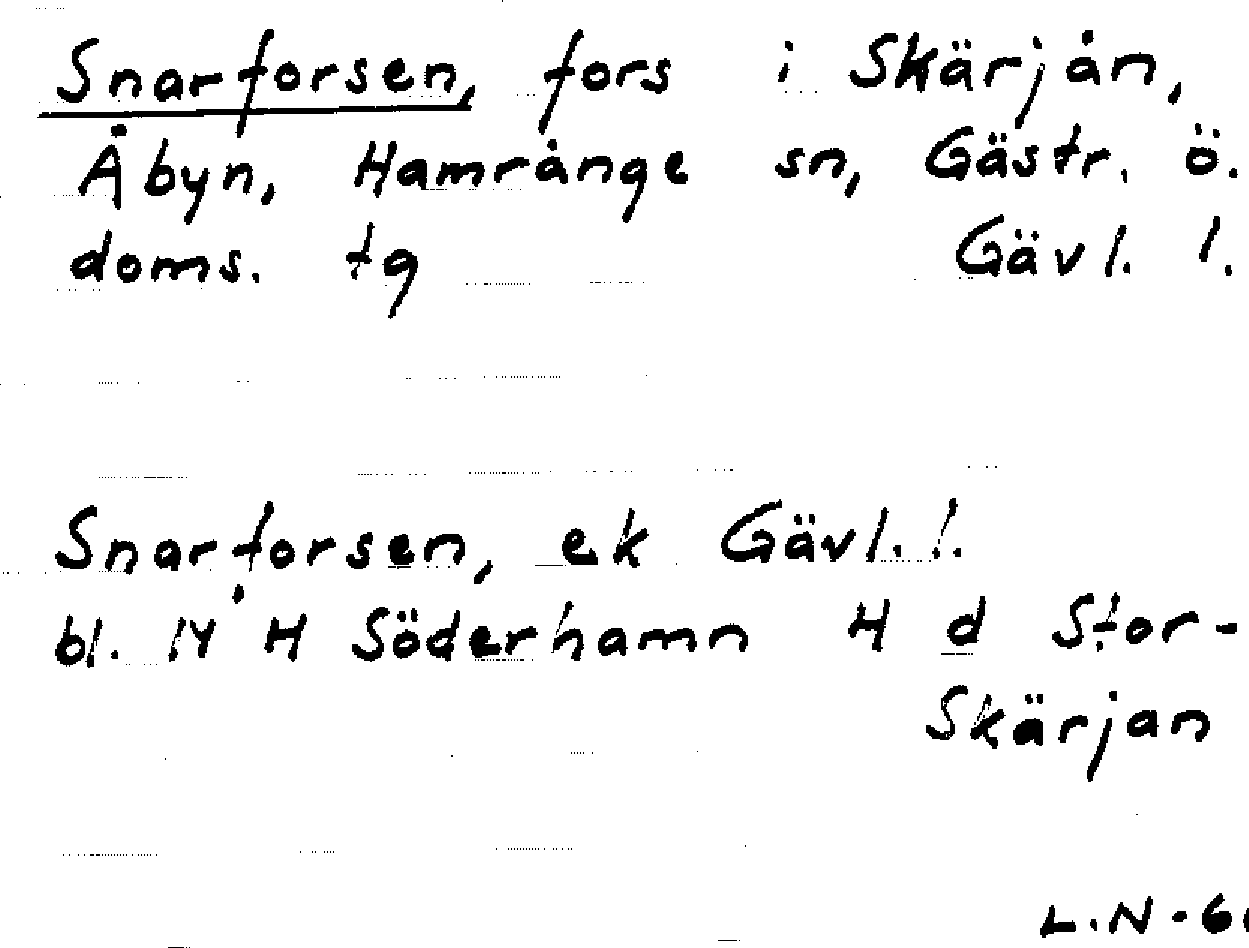 Snarforsen, fors i Skärjån,
Åbyn, Hamrånge sn, Gästr. ö.
doms. tg Gävl. l.
Snarforsen, ek Gävl. l.
bl. 14 H Söderhamn 4 d Stor-
Skärjan
L.N-6